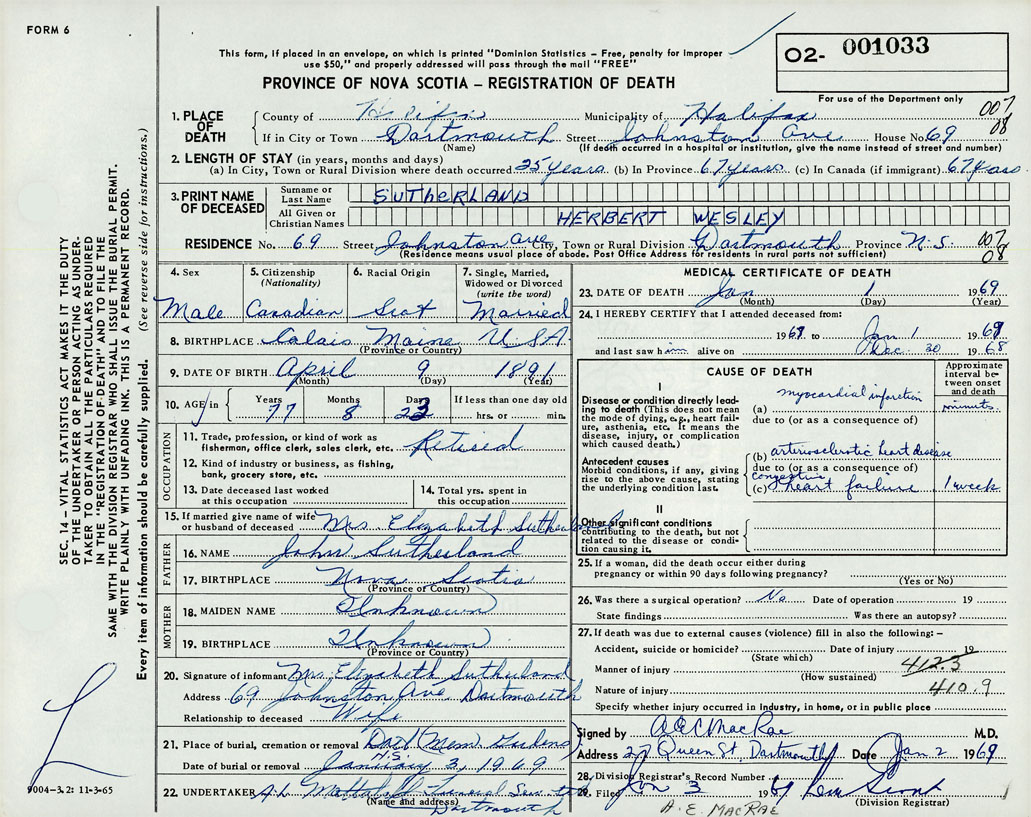 FORM 6
This form, if placed in an envelope, on which is printed "Dominion Statistics – Free, penalty for improper
use $50," and properly addressed will pass through the mail "FREE"
O2- 001033
PROVINCE OF NOVA SCOTIA – REGISTRATION OF DEATH
For use of the Department only
1. PLACE OF DEATH County of Municipality of Halifax 007
If in City or Town Dartmouth Street Johnston Ave House No. 69 08
(Name) (If death occurred in a hospital or institution, give the name instead of street and number)
2. LENGTH OF STAY (in years, months and days)
(a) In City, Town or Rural Division where death occurred 25 years (b) In Province 67 years (c) In Canada (if immigrant) 67 years
3. PRINT NAME OF DECEASED Surname or Last Name SUTHERLAND
All Given or Christian Names HERBERT WESLEY
RESIDENCE No. 69 Street Johnston Ave City, Town or Rural Division Dartmouth Province N.S. 007
(Residence means usual place of abode. Post Office Address for residents in rural parts not sufficient) 08
4. Sex 5. Citizenship (Nationality) 6. Racial Origin 7. Single, Married, Widowed or Divorced (write the word)
Male Canadian Scot Married
8. BIRTHPLACE Calais Maine U.S.A.
(Province or Country)
9. DATE OF BIRTH April 9 1891
(Month) (Day) (Year)
10. AGE in Years Months Days If less than one day old
77 8 23 hrs. or min.
OCCUPATION
11. Trade, profession, or kind of work as fisherman, office clerk, sales clerk, etc. Retired
12. Kind of industry or business, as fishing, bank, grocery store, etc.
13. Date deceased last worked at this occupation
14. Total yrs. spent in this occupation
15. If married give name of wife or husband of deceased Mrs Elizabeth Sutherland
FATHER
16. NAME John Sutherland
17. BIRTHPLACE Nova Scotia
(Province or Country)
MOTHER
18. MAIDEN NAME Unknown
19. BIRTHPLACE Unknown
(Province or Country)
20. Signature of informant Mrs. Elizabeth Sutherland
Address 69 Johnston Ave Dartmouth
Relationship to deceased Wife
21. Place of burial, cremation or removal Dart (Mem) Gardens
N.S.
Date of burial or removal January 3, 1969
22. UNDERTAKER Funeral
(Name and address) Dartmouth
MEDICAL CERTIFICATE OF DEATH
23. DATE OF DEATH Jan 1 1969
(Month) (Day) (Year)
24. I HEREBY CERTIFY that I attended deceased from:
1969 to Jan 1 1969
and last saw him alive on Dec 30 1968
CAUSE OF DEATH
Approximate interval between onset and death
I
Disease or condition directly leading to death (This does not mean the mode of dying, e.g., heart failure, asthenia, etc. It means the disease, injury, or complication which caused death.)
(a) myocardial infarction minutes
due to (or as a consequence of)
Antecedent causes
Morbid conditions, if any, giving rise to the above cause, stating the underlying condition last.
(b) arteriosclerotic heart disease
due to (or as a consequence of)
(c) congestive heart failure 1 week
II
Other significant conditions contributing to the death, but not related to the disease or condition causing it.
25. If a woman, did the death occur either during pregnancy or within 90 days following pregnancy?
(Yes or No)
26. Was there a surgical operation? No Date of operation 19
State findings Was there an autopsy?
27. If death was due to external causes (violence) fill in also the following: –
Accident, suicide or homicide? Date of injury 19
(State which)
Manner of injury 412.3
(How sustained)
Nature of injury 410.9
Specify whether injury occurred in industry, in home, or in public place
Signed by MacRae M.D.
Address 27 Queen St, Dartmouth Date Jan 2 1969
28. Division Registrar's Record Number
29. Filed Jan 3 1969
(Division Registrar)
A. E. MACRAE
SEC. 14 – VITAL STATISTICS ACT MAKES IT THE DUTY
OF THE UNDERTAKER OR PERSON ACTING AS UNDER-
TAKER TO OBTAIN ALL THE PARTICULARS REQUIRED
IN THE "REGISTRATION OF DEATH" AND TO FILE THE
SAME WITH THE DIVISION REGISTRAR WHO SHALL ISSUE THE BURIAL PERMIT.
WRITE PLAINLY WITH UNFADING INK. THIS IS A PERMANENT RECORD.
Every item of information should be carefully supplied. (See reverse side for instructions.)
9004-3.2: 11-3-65